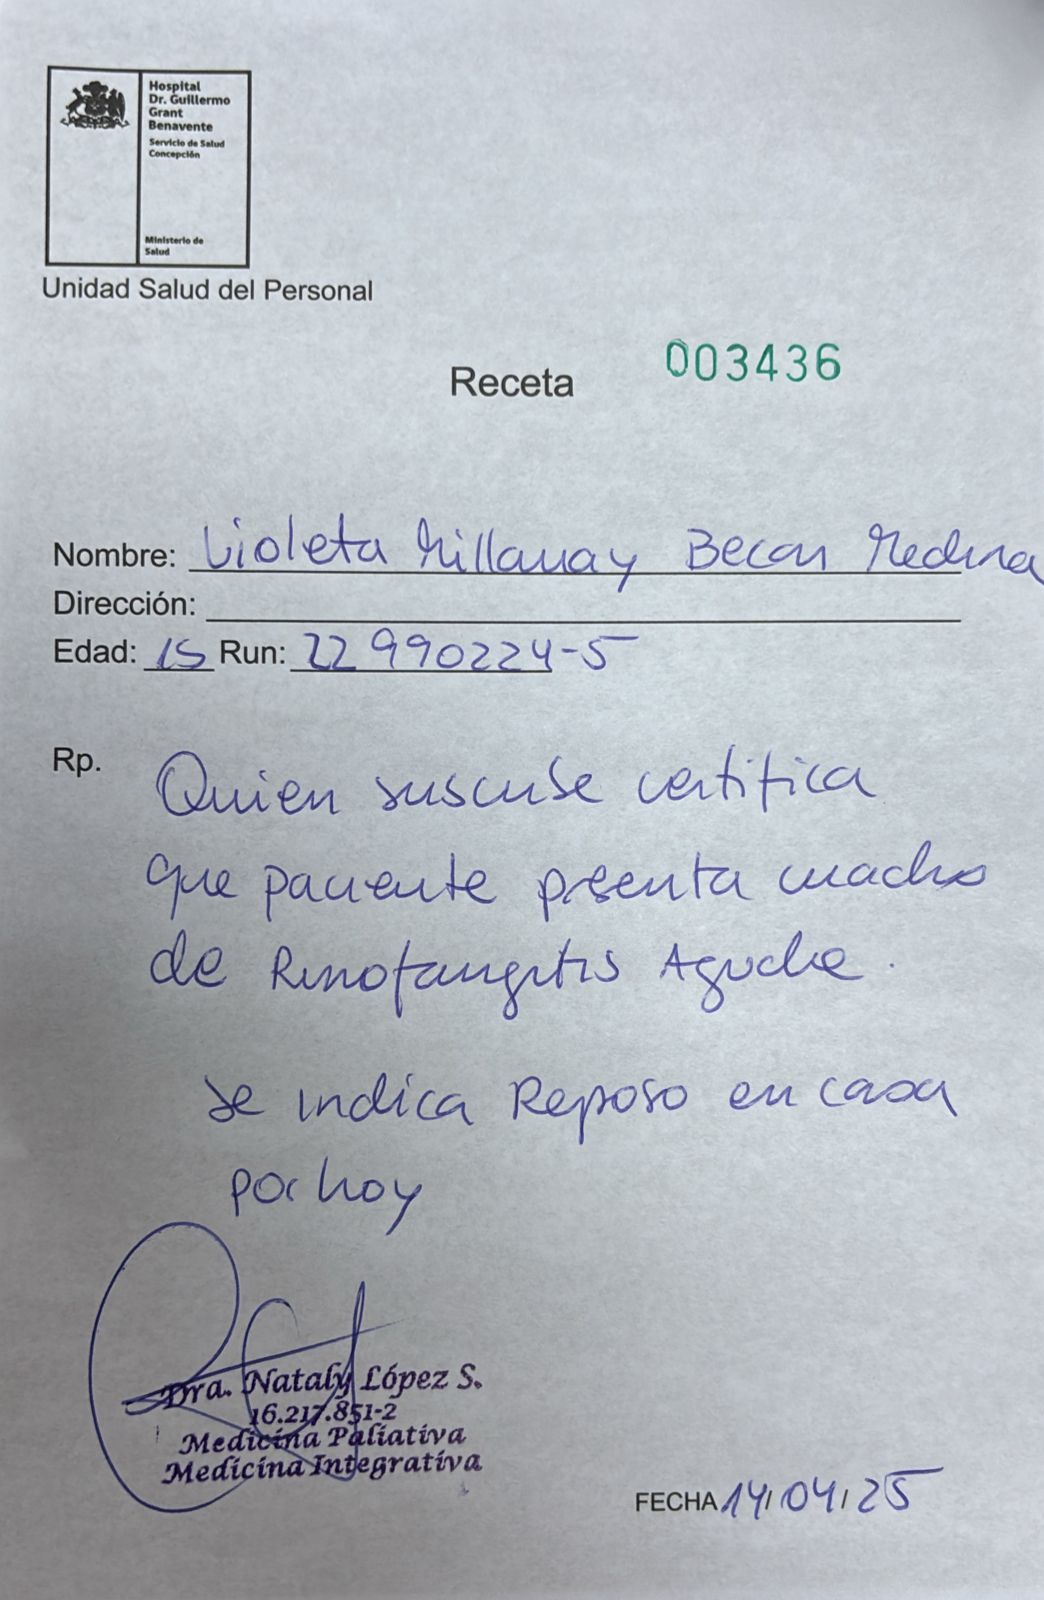 Hospital
Dr. Guillermo
Grant
Benavente
Servicio de Salud
Concepción
Ministerio de
Salud
Unidad Salud del Personal
Receta 003436
Nombre: Violeta Millaray Becar Medina
Dirección:
Edad: 15 Run: 22990224-5
Rp. Quien suscribe certifica
que paciente presenta cuadro
de Rinofaringitis Aguda.
Se indica Reposo en casa
por hoy
Dra. Nataly López S.
16.217.851-2
Medicina Paliativa
Medicina Integrativa
FECHA 14/04/25